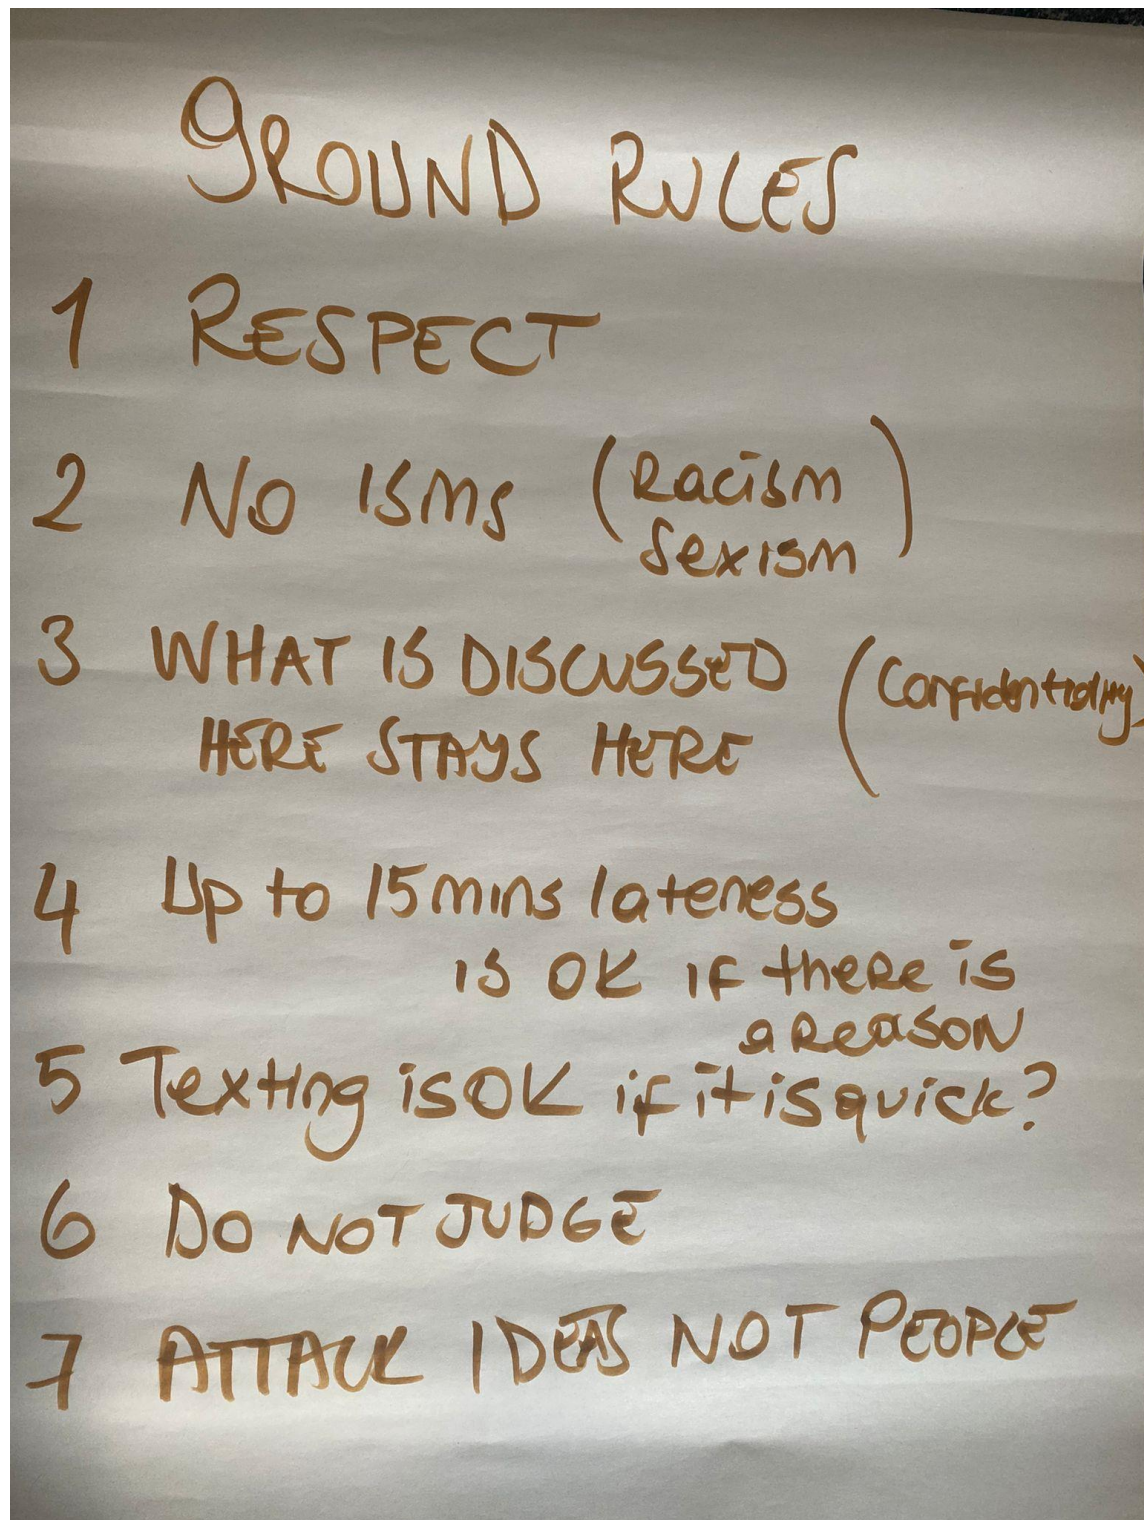 GROUND RULES
1 RESPECT
2 No ISMS (Racism
Sexism)
3 WHAT IS DISCUSSED (Confidentiality)
HERE STAYS HERE
4 Up to 15 mins lateness
is OK if there is
a Reason
5 Texting is OK if it is quick?
6 DO NOT JUDGE
7 ATTACK IDEAS NOT PEOPLE